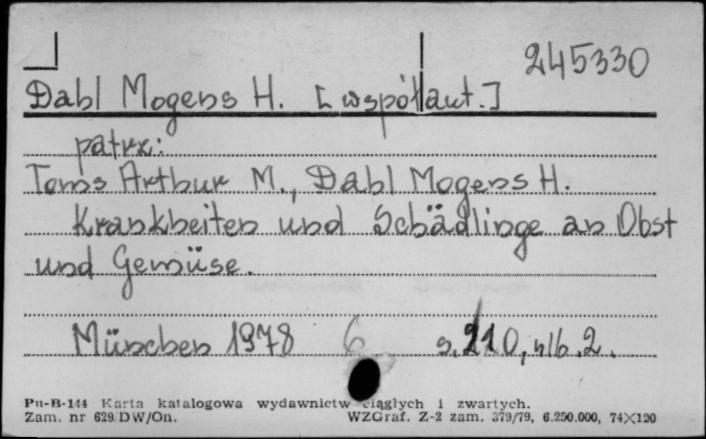 245330
Dahl Mogens H. [współaut.]
patrz:
Toms Arthur M., Dahl Mogens H.
Krankheiten und Schädlinge an Obst
und Gemüse.
München 1978 6 s. 210, nlb. 2.
Pu-B-144 Karta katalogowa wydawnictw ciągłych i zwartych.
Zam. nr 629/DW/On. WZGraf. Z-2 zam. 379/79, 6.250.000, 74×120